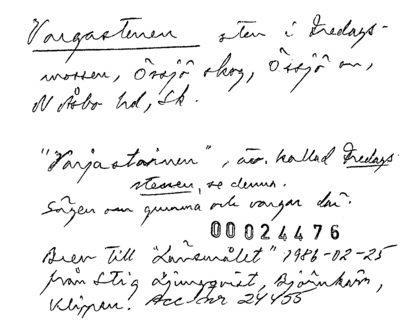 Vargastenen sten i Fredags-
mossen, Össjö skog, Össjö sn,
N Åsbo hd, Sk.
"Varjastainen", äv. kallad Fredags-
stenen, se denna.
Sägen om gumma och vargar där.
00024476
Brev till "Länsmålet" 1986-02-25
från Stig Ljungqvist, Björnhäm,
Klippan. Acc-nr 24455